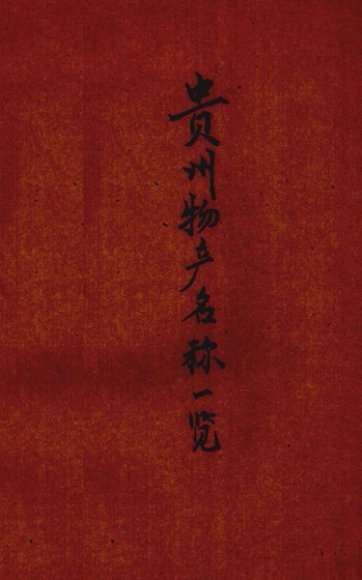 貴州物产名称一览